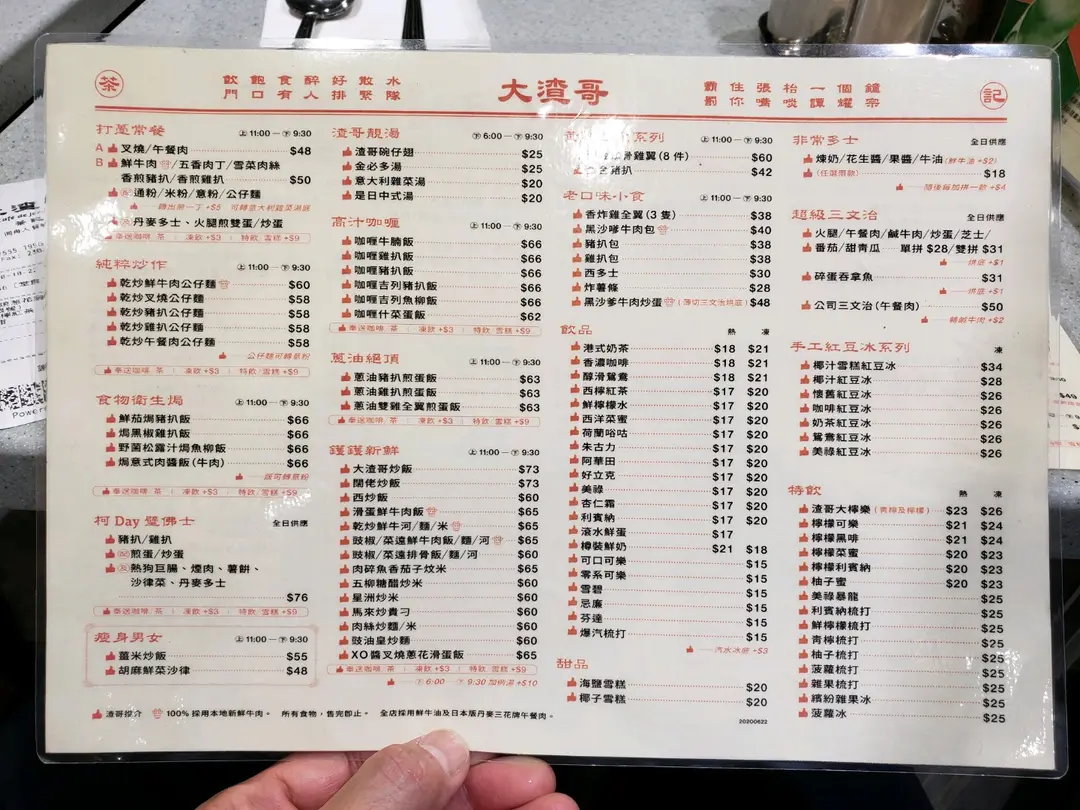 茶
飲飽食醉好散水
門口有人排緊隊
大渣哥
霸住張枱一個鐘
罰你嘴啖譚耀宗
記
打躉常餐 上11:00 — 下9:30
A 叉燒/午餐肉 $48
B 鮮牛肉/五香肉丁/雪菜肉絲
香煎豬扒/香煎雞扒 $50
配 通粉/米粉/意粉/公仔麵
轉出前一丁 +$5 可轉意大利雜菜湯底
丹麥多士、火腿煎雙蛋/炒蛋
奉送咖啡/茶 | 凍飲+$3 | 特飲/雪糕+$9
純粹炒作 上11:00 — 下9:30
乾炒鮮牛肉公仔麵 $60
乾炒叉燒公仔麵 $58
乾炒豬扒公仔麵 $58
乾炒雞扒公仔麵 $58
乾炒午餐肉公仔麵 $58
公仔麵可轉意粉
奉送咖啡/茶 | 凍飲+$3 | 特飲/雪糕+$9
食物衛生焗 上11:00 — 下9:30
鮮茄焗豬扒飯 $66
焗黑椒雞扒飯 $66
野菌松露汁焗魚柳飯 $66
焗意式肉醬飯(牛肉) $66
飯可轉意粉
奉送咖啡/茶 | 凍飲+$3 | 特飲/雪糕+$9
柯 Day 璧佛士 全日供應
豬扒/雞扒
配 煎蛋/炒蛋
及 熱狗巨腸、煙肉、薯餅、
沙律菜、丹麥多士
$76
奉送咖啡/茶 | 凍飲+$3 | 特飲/雪糕+$9
瘦身男女 上11:00 — 下9:30
薑米炒飯 $55
胡麻鮮菜沙律 $48
渣哥靚湯 下6:00 — 下9:30
渣哥碗仔翅 $25
金必多湯 $25
意大利雜菜湯 $20
是日中式湯 $20
高汁咖喱 上11:00 — 下9:30
咖喱牛腩飯 $66
咖喱雞扒飯 $66
咖喱豬扒飯 $66
咖喱吉列豬扒飯 $66
咖喱吉列魚柳飯 $66
咖喱什菜蛋飯 $62
奉送咖啡/茶 | 凍飲+$3 | 特飲/雪糕+$9
蔥油絕頂 上11:00 — 下9:30
蔥油豬扒煎蛋飯 $63
蔥油雞扒煎蛋飯 $63
蔥油雙雞全翼煎蛋飯 $63
奉送咖啡/茶 | 凍飲+$3 | 特飲/雪糕+$9
鑊鑊新鮮 上11:00 — 下9:30
大渣哥炒飯 $73
闊佬炒飯 $73
西炒飯 $60
滑蛋鮮牛肉飯 $65
乾炒鮮牛河/麵/米 $65
豉椒/菜遠鮮牛肉飯/麵/河 $65
豉椒/菜遠排骨飯/麵/河 $60
肉碎魚香茄子炆米 $65
五柳糖醋炒米 $60
星洲炒米 $60
馬來炒貴刁 $60
肉絲炒麵/米 $60
豉油皇炒麵 $60
XO醬叉燒蔥花滑蛋飯 $65
奉送咖啡/茶 | 凍飲+$3 | 特飲/雪糕+$9
下6:00 — 下9:30 加例湯+$10
系列 上11:00 — 下9:30
雞翼(8件) $60
豬扒 $42
老口味小食 上11:00 — 下9:30
香炸雞全翼(3隻) $38
黑沙爹牛肉包 $40
豬扒包 $38
雞扒包 $38
西多士 $30
炸薯條 $28
黑沙爹牛肉炒蛋(薄切三文治烘底) $48
飲品 熱 凍
港式奶茶 $18 $21
香濃咖啡 $18 $21
醇滑鴛鴦 $18 $21
西檸紅茶 $17 $20
鮮檸檬水 $17 $20
西洋菜蜜 $17 $20
荷蘭唂咕 $17 $20
朱古力 $17 $20
阿華田 $17 $20
好立克 $17 $20
美祿 $17 $20
杏仁霜 $17 $20
利賓納 $17 $20
滾水鮮蛋 $17
樽裝鮮奶 $21 $18
可口可樂 $15
零系可樂 $15
雪碧 $15
忌廉 $15
芬達 $15
爆汽梳打 $15
汽水冰底+$3
甜品
海鹽雪糕 $20
椰子雪糕 $20
非常多士 全日供應
煉奶/花生醬/果醬/牛油(鮮牛油+$2)
(任選兩款) $18
隨後每加拼一款+$4
超級三文治 全日供應
火腿/午餐肉/鹹牛肉/炒蛋/芝士/
番茄/甜青瓜 單拼$28/雙拼$31
烘底+$1
碎蛋吞拿魚 $31
烘底+$1
公司三文治(午餐肉) $50
轉鹹牛肉+$2
手工紅豆冰系列 凍
椰汁雪糕紅豆冰 $34
椰汁紅豆冰 $28
懷舊紅豆冰 $26
咖啡紅豆冰 $26
奶茶紅豆冰 $26
鴛鴦紅豆冰 $26
美祿紅豆冰 $26
特飲 熱 凍
渣哥大檸樂(青檸及檸檬) $23 $26
檸檬可樂 $21 $24
檸檬黑啡 $21 $24
檸檬菜蜜 $20 $23
檸檬利賓納 $20 $23
柚子蜜 $20 $23
美祿暴龍 $25
利賓納梳打 $25
鮮檸檬梳打 $25
青檸梳打 $25
柚子梳打 $25
菠蘿梳打 $25
雜果梳打 $25
繽紛雜果冰 $25
菠蘿冰 $25
渣哥推介 100%採用本地新鮮牛肉。 所有食物，售完即止。 全店採用鮮牛油及日本版丹麥三花牌午餐肉。
20200622